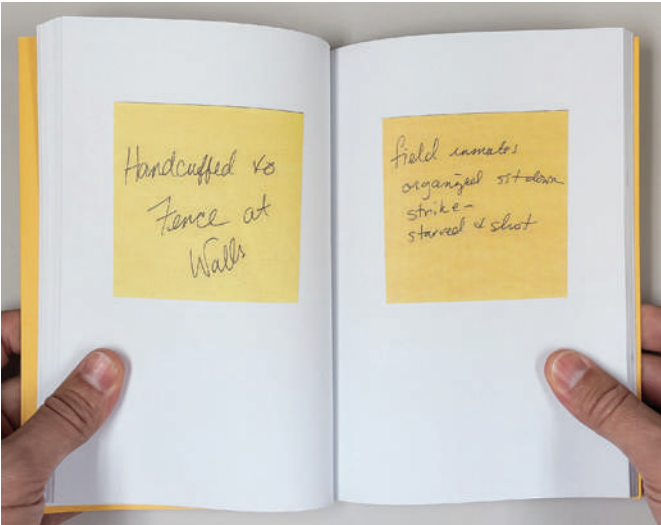 Handcuffed to
Fence at
Walls
field inmates
organized sitdown
strike-
starved & shot